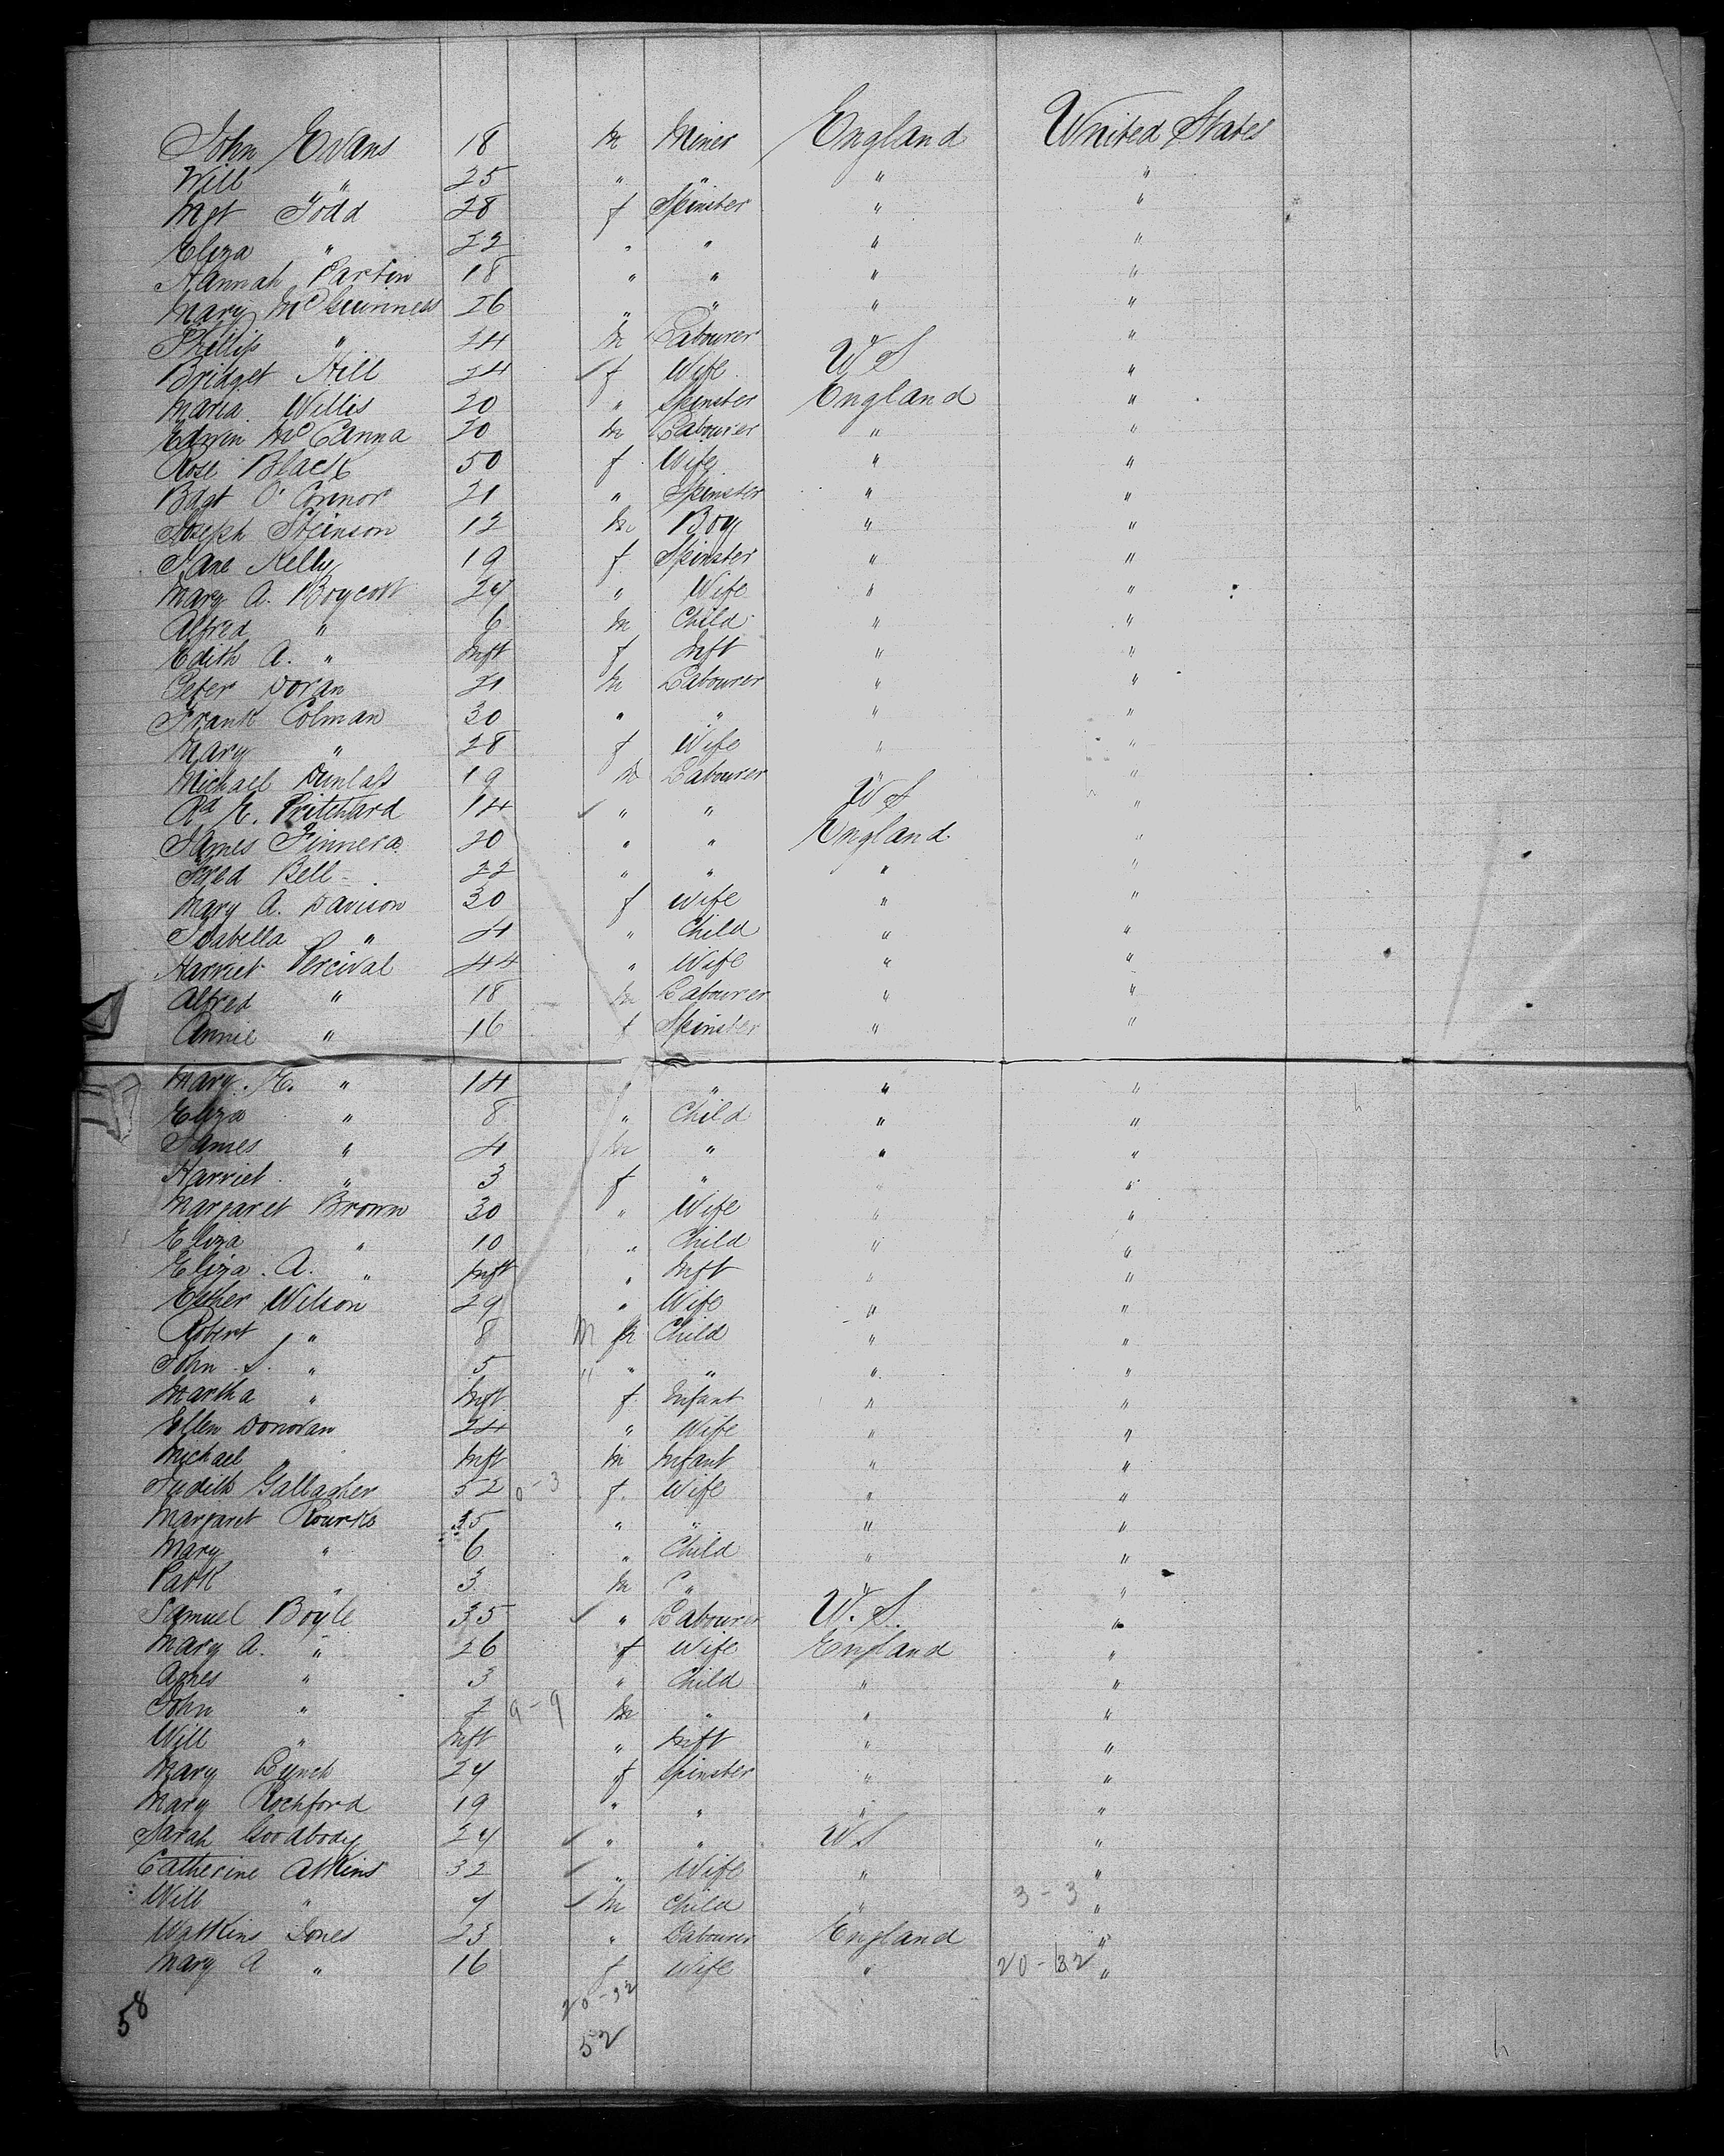 John Evans 18 m Miner England United States
Will " 25 " " " "
Mgt Todd 28 f Spinster " "
Eliza " 22 " " " "
Hannah Partin 18 " " " "
Mary McGuinness 26 " " " "
Phillip " 24 m Labourer " "
Bridget Hill 24 ✓ f Wife U S "
Maria Willis 20 " Spinster England "
Edwin McCanna 20 m Labourer " "
Rose Black 50 f Wife " "
Bdgt O'Connor 21 " Spinster " "
Joseph Stinson 12 m Boy " "
Jane Kelly 19 f Spinster " "
Mary A. Boycott 24 " Wife " "
Alfred " 6 m Child " "
Edith A. " Inft f Inft " "
Peter Doran 21 m Labourer " "
Frank Colman 30 " " " "
Mary " 28 f Wife " "
Michael Dunlap 19 m Labourer " "
Rd E. Pritchard 14 ✓ " " U S "
James Finnera 20 " " England "
Fred Bell 22 " " " "
Mary A. Davison 30 f Wife " "
Isabella " 4 " Child " "
Harriet Percival 44 " Wife " "
Alfred " 18 m Labourer " "
Annie " 16 f Spinster " "
Mary. E. " 14 " " " "
Eliza " 8 " Child " "
James " 4 m " " "
Harriet " 3 f " " "
Margaret Brown 30 " Wife " "
Eliza " 10 " Child " "
Eliza. A. " Inft " Inft " "
Esther Wilson 29 " Wife " "
Robert " 8 M m Child " "
John S. " 5 " " " " "
Martha " Inft f Infant " "
Ellen Donovan 24 " Wife " "
Michael Inft m Infant " "
Judith Gallagher 52 0-3 f. Wife " "
Margaret Rourke 35 " " " "
Mary " 6 " Child " "
Patk " 3 m " " "
Samuel Boyle 35 ✓ " Labourer U. S. "
Mary A. " 26 f Wife England "
Agnes " 3 " Child " "
John " 2 9-9 m " " "
Will " Inft " Inft " "
Mary Lynch 24 f Spinster " "
Mary Rochford 19 " " " "
Sarah Goodbody 24 ✓ " " U S "
Catherine Atkins 32 ✓ " Wife " "
Will " ✓ m Child " 3-3 "
Watkins Jones 23 " Labourer England "
Mary A " 16 f Wife " 20-32 "
20-32
58
52